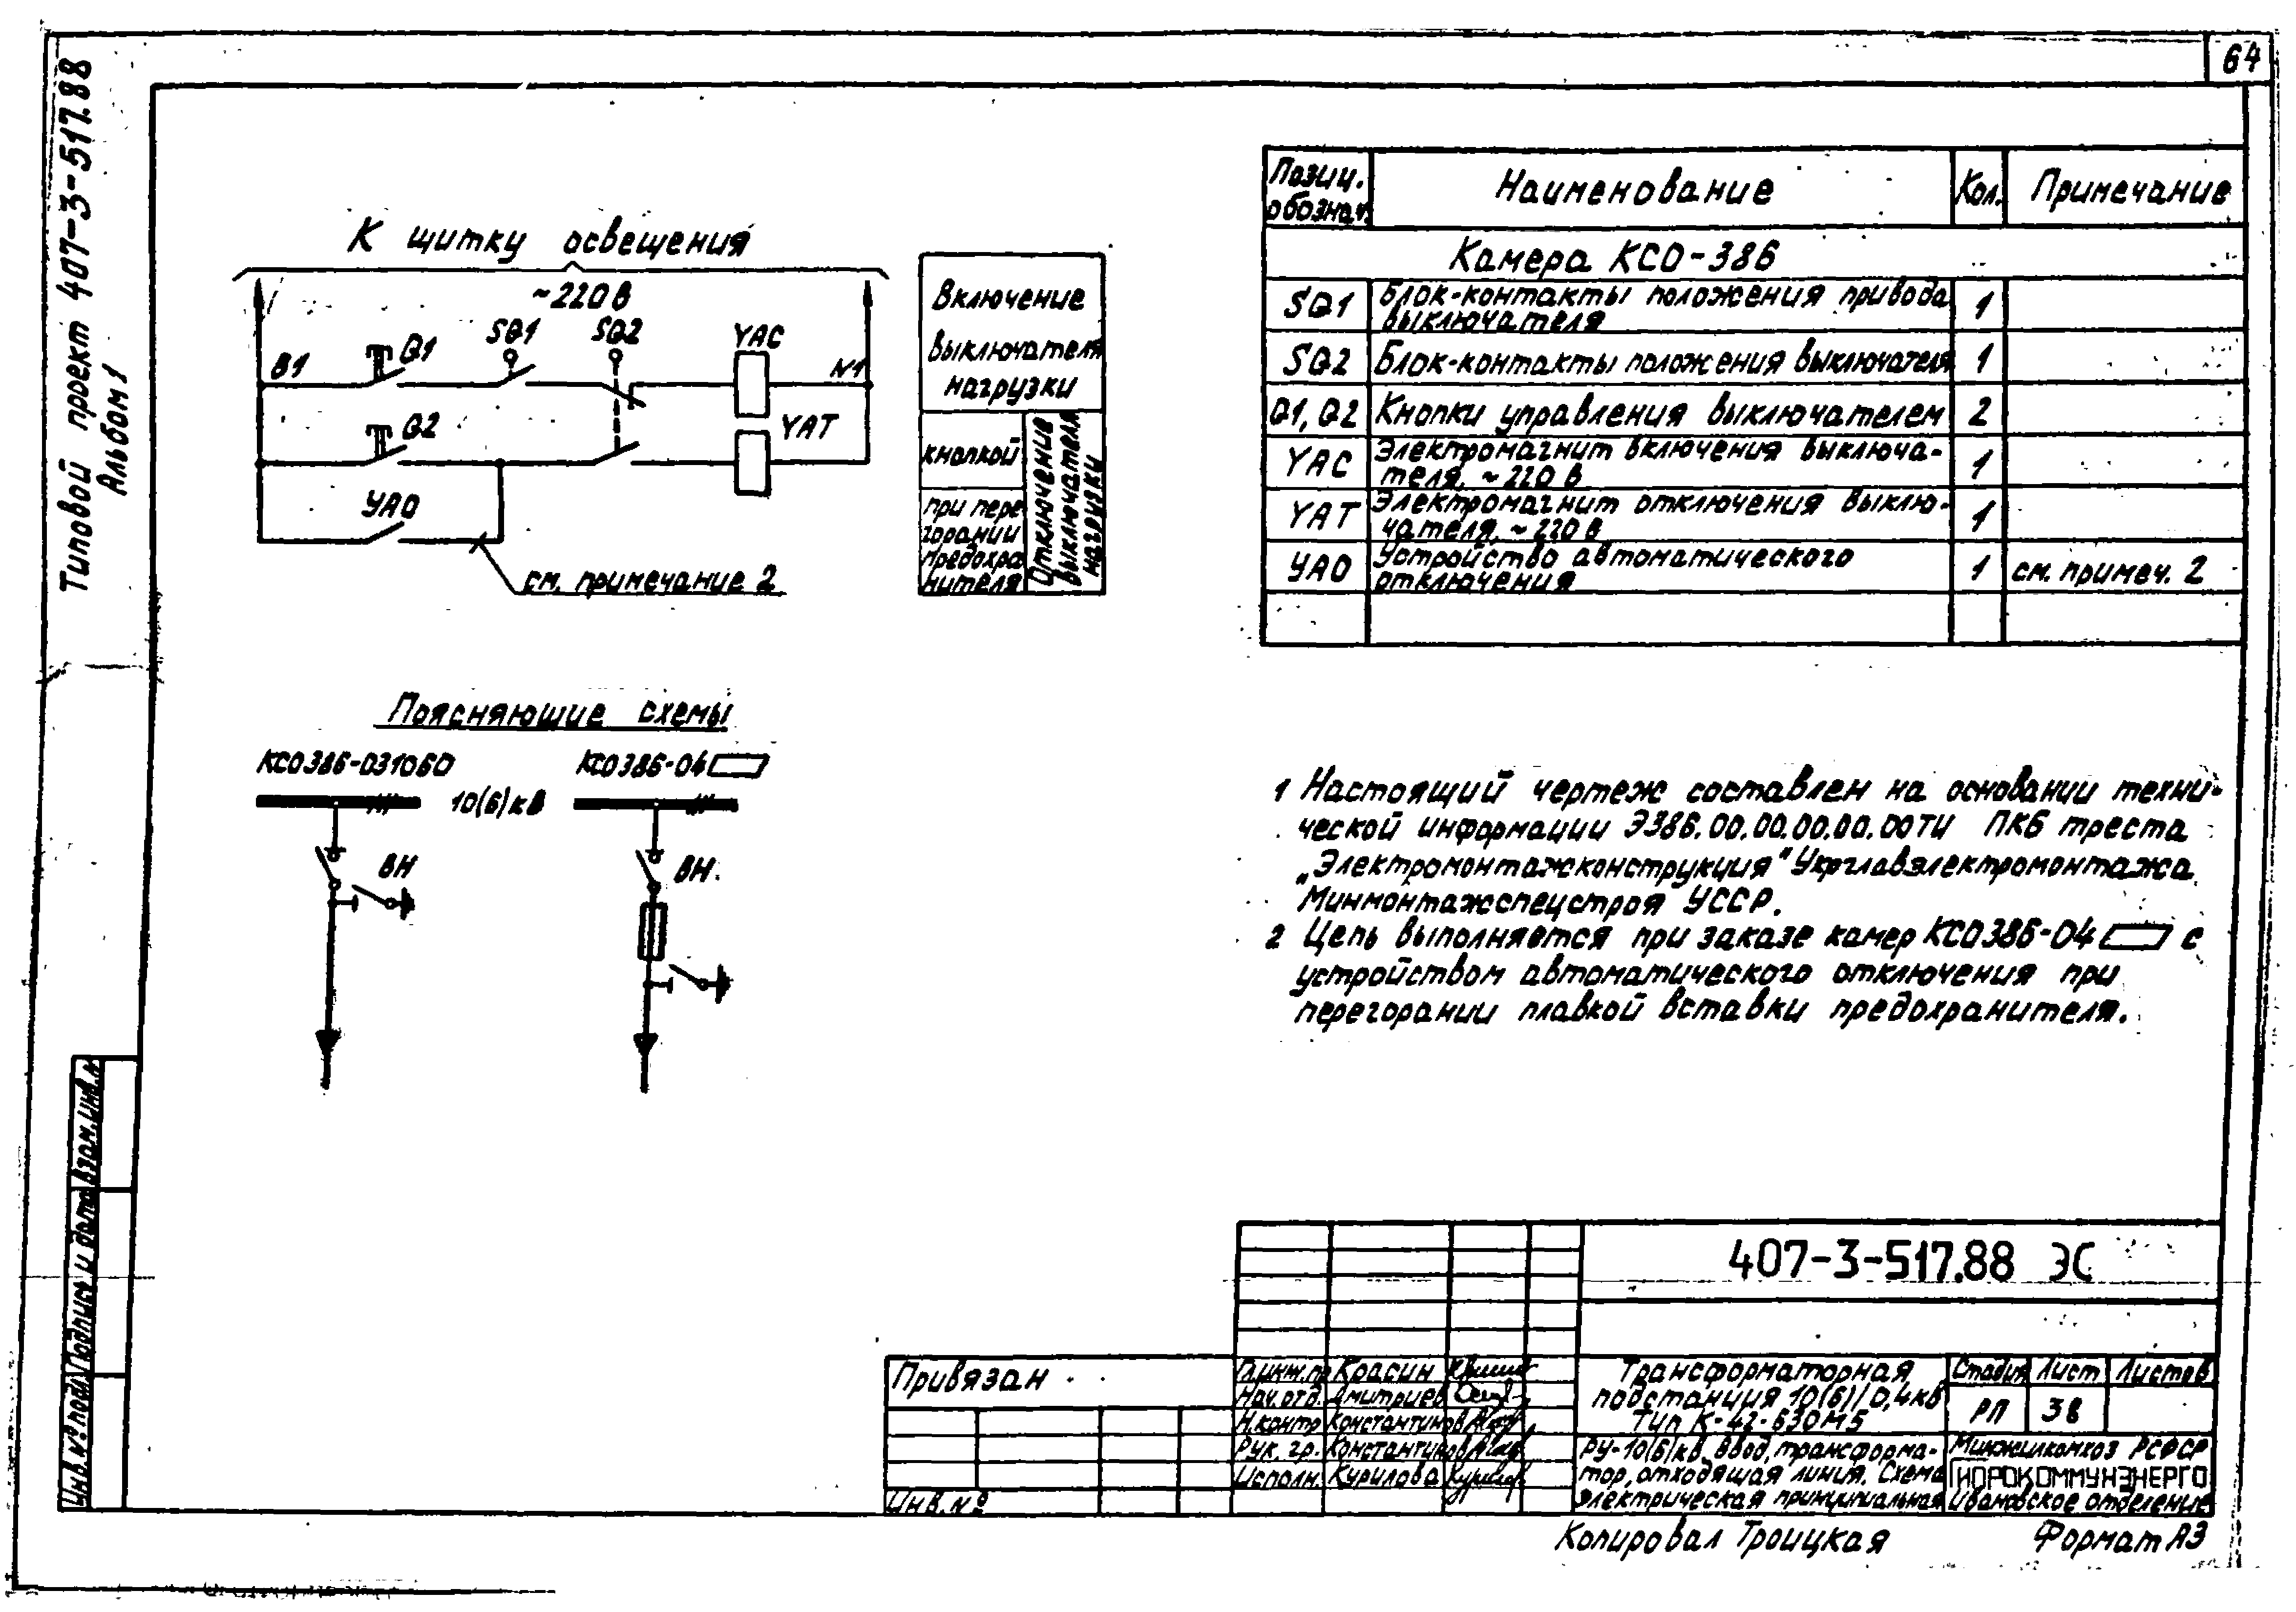 64
Типовой проект 407-3-517.88
Альбом 1
К щитку освещения
~220 В
В1
Q1
SQ1
SQ2
YAC
N1
Q2
YAT
УАО
см. примечание 2
Включение
выключателя
нагрузки
кнопкой
при пере
горании
предохра
нителя
Отключение
выключателя
нагрузки
Позиц.
обознач.
Наименование
Кол.
Примечание
Камера КСО-386
SQ1
Блок-контакты положения привода
выключателя
1
SQ2
Блок-контакты положения выключателя
1
Q1, Q2
Кнопки управления выключателем
2
YAC
Электромагнит включения выключа-
теля, ~220 В
1
YAT
Электромагнит отключения выклю-
чателя, ~220 В
1
УАО
Устройство автоматического
отключения
1
см. примеч. 2
Поясняющие схемы
КСО386-031060
10(6)кВ
КСО386-04
ВН
ВН
1 Настоящий чертеж составлен на основании техни-
ческой информации Э386.00.00.00.00.00ТИ ПКБ треста
„Электромонтажконструкция" Укрглавэлектромонтажа
Минмонтажспецстроя УССР.
2 Цепь выполняется при заказе камер КСО386-04 с
устройством автоматического отключения при
перегорании плавкой вставки предохранителя.
Взам. инв. №
Подпись и дата
Инв. № подл.
407-3-517.88 ЭС
Привязан
Инв. №
Гл. инж. пр. Красин
Нач. отд. Дмитриев
Н. контр Константинов
Рук. гр. Константинов
Исполн. Курилова
Трансформаторная
подстанция 10(6)/0,4кВ
Тип К-42-630М5
Стадия Лист Листов
РП 38
РУ-10(6)кВ. Ввод, трансформа-
тор, отходящая линия. Схема
электрическая принципиальная
Минжилкомхоз РСФСР
ГИПРОКОММУНЭНЕРГО
Ивановское отделение
Копировал Троицкая
Формат А3